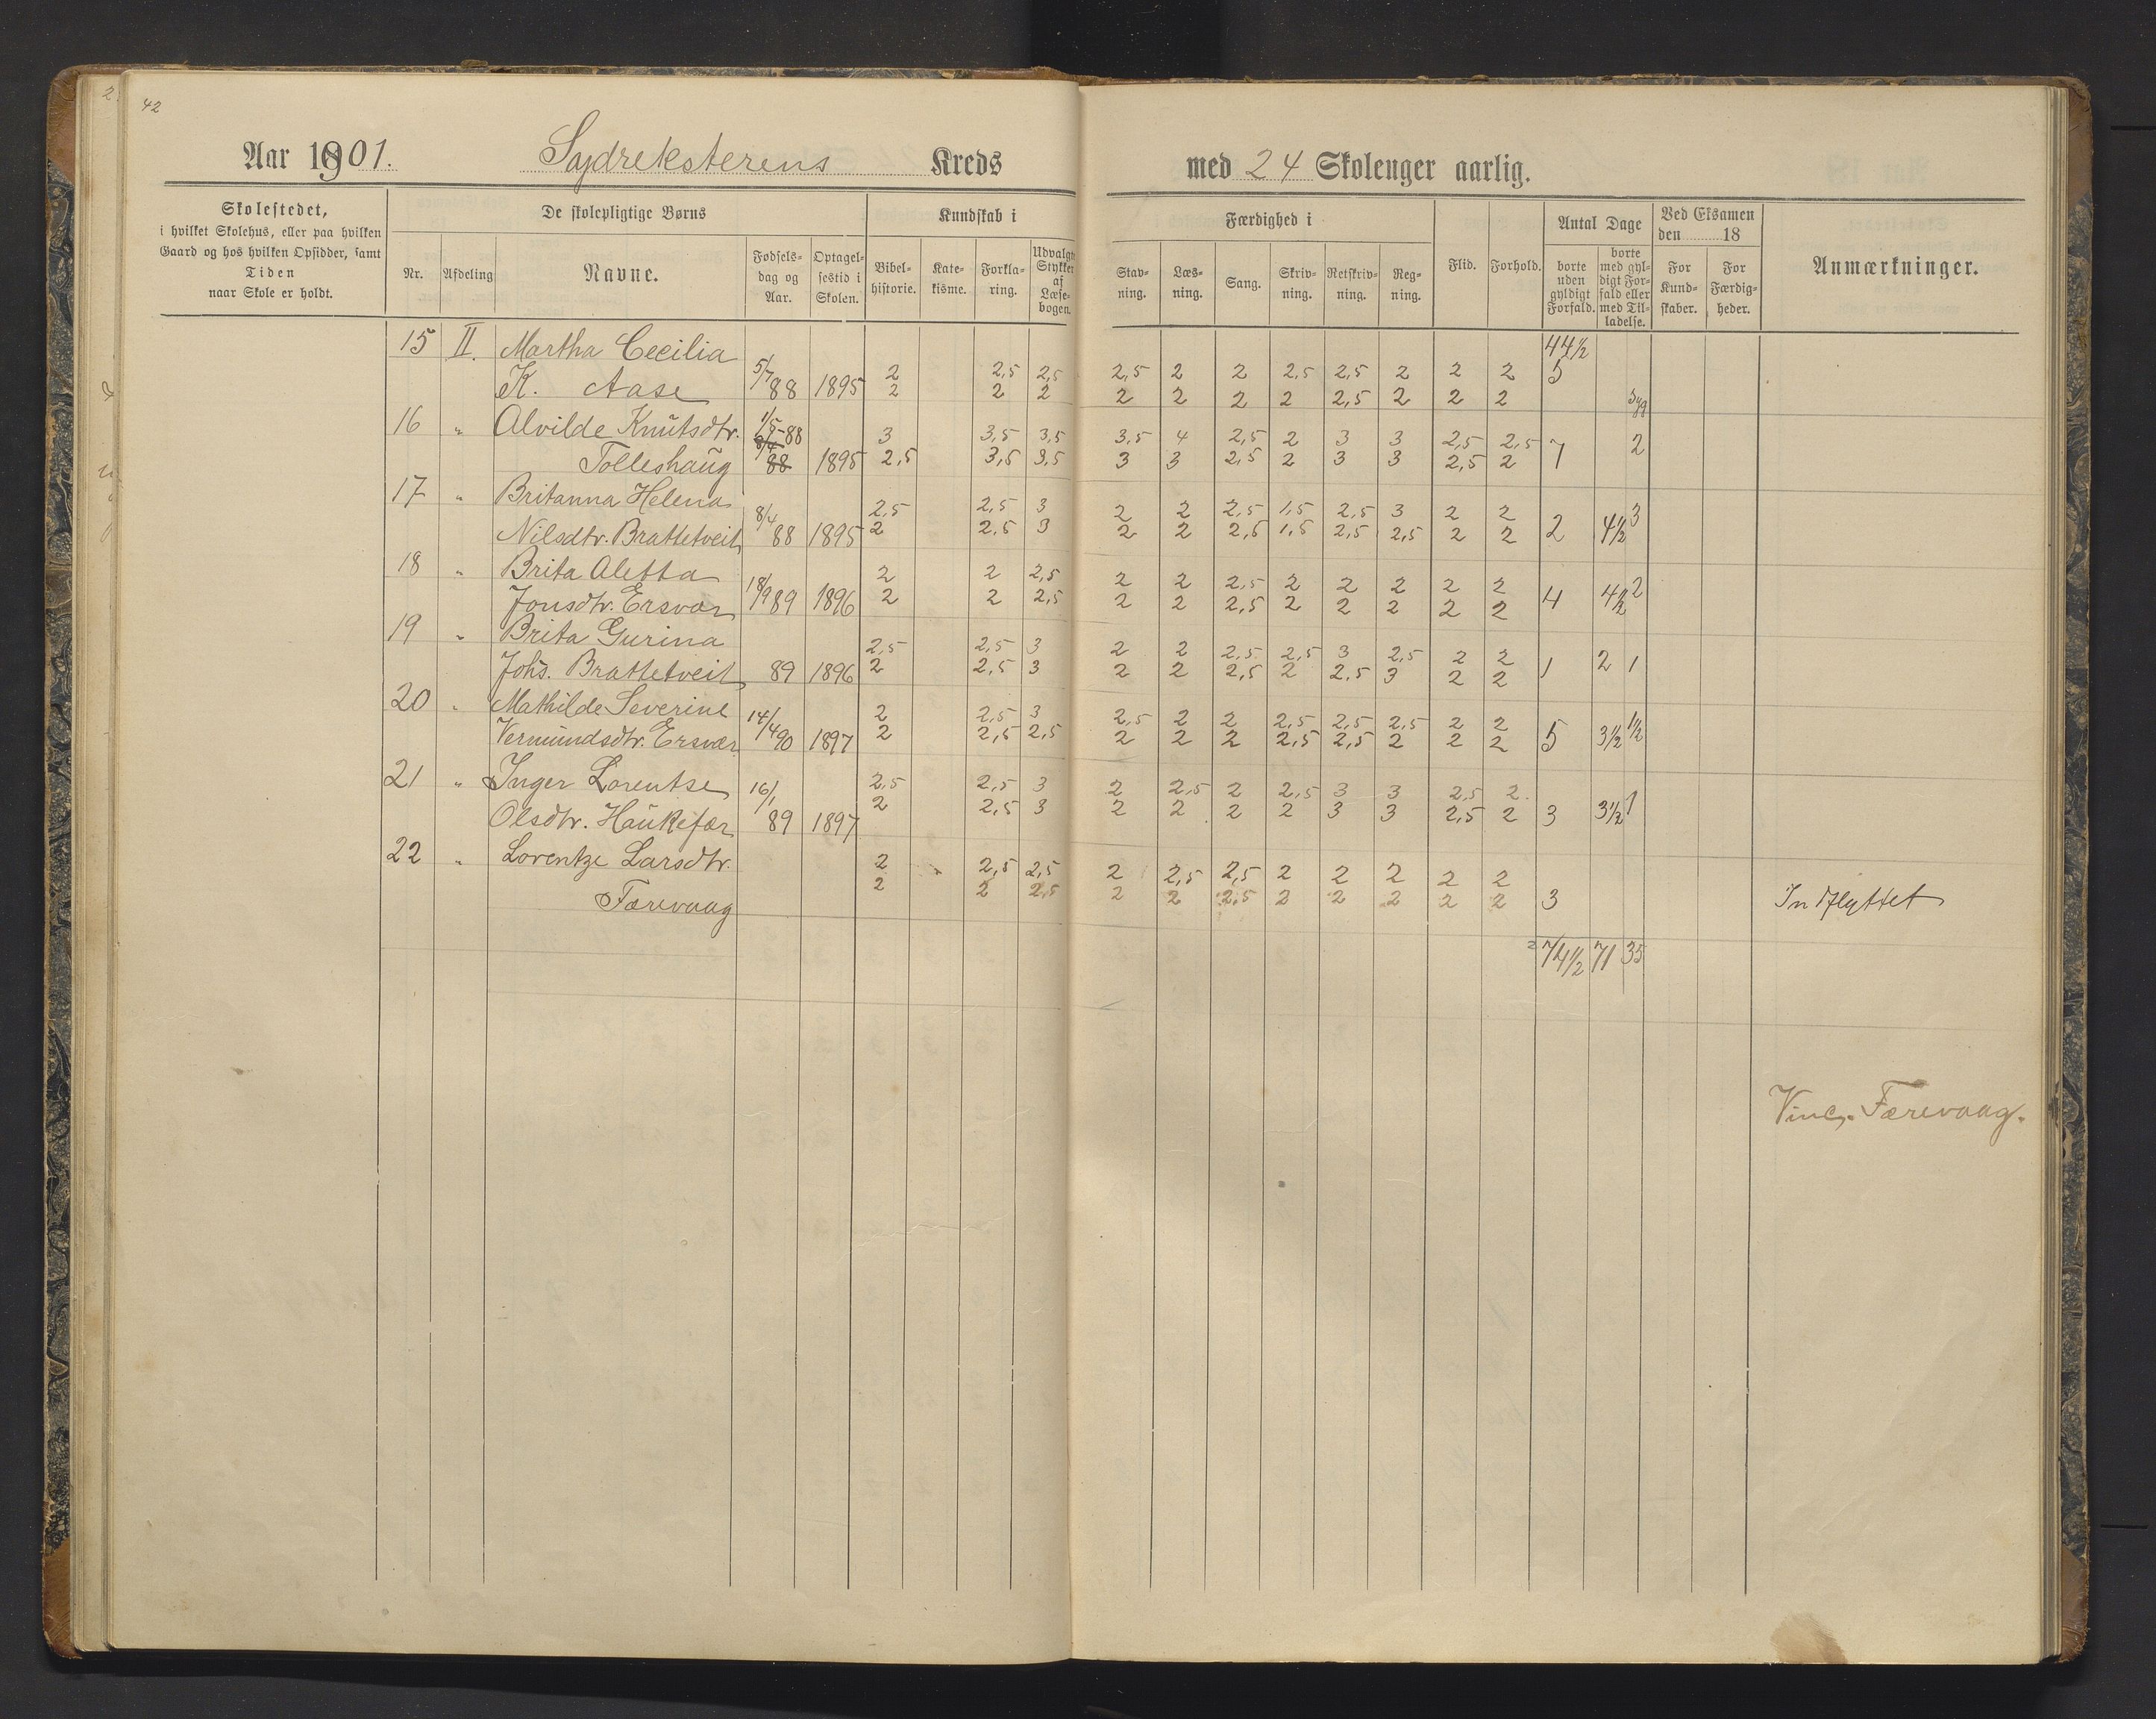 42
Aar 1901. Sydreksterens Kreds med 24 Skoleuger aarlig.
Skolestedet,
i hvilket Skolehus, eller paa hvilken
Gaard og hos hvilken Opsidder, samt
Tiden
naar Skole er holdt.
De skolepligtige Børns
Nr. Afdeling Navne. Fødselsdag og Aar. Optagelsestid i Skolen.
Kundskab i
Bibelhistorie. Katekisme. Forklaring. Udvalgte Stykker af Læsebogen.
Færdighed i
Stavning. Læsning. Sang. Skrivning. Retskrivning. Regning.
Flid. Forhold.
Antal Dage
borte uden gyldigt Forfald. borte med gyldigt Forfald eller med Tilladelse.
Ved Eksamen
den 18
For Kundskaber. For Færdigheder.
Anmærkninger.
44½
15 II. Martha Cecilia 5/7 2 2,5 2,5 2,5 2 2 2,5 2,5 2 2 2 5
K. Aase 88 1895 2 2 2 2 2 2 2 2,5 2 2 2 syg
16 " Alvilde Knutsdtr. 1/5-88 3 3,5 3,5 3,5 4 2,5 2 3 3 2,5 2,5 7 2
Tolleshaug 88 1895 2,5 3,5 3,5 3 3 2,5 2 3 3 2,5 2
17 " Britanna Helena 8/4 2,5 2,5 3 2 2 2,5 1,5 2,5 3 2 2 3
Nilsdtr. Brattetveit 88 1895 2 2,5 3 2 2 2,5 1,5 2,5 2,5 2 2 2 4½
18 " Brita Aletta 18/9 2 2 2,5 2 2 2,5 2 2 2 2 2 2
Jonsdtr. Ersvær 89 1896 2 2 2,5 2 2 2,5 2 2 2 2 2 4 4½
19 " Brita Gurina 2,5 2,5 3 2 2 2,5 2,5 3 2,5 2 2
Johs. Brattetveit 89 1896 2 2,5 3 2 2 2,5 2 2,5 3 2 2 1 2 1
20 " Mathilde Severine 14/4 2 2,5 3 2,5 2 2 2,5 2,5 2,5 2 2 1½
Vermundsdtr. Ersvær 90 1897 2 2,5 2,5 2 2 2 2,5 2,5 2 2 2 5 3½
21 " Inger Lorentse 16/1 2,5 2,5 3 2 2,5 2 2,5 3 3 2,5 2.
Olsdtr. Haukefær 89 1897 2 2,5 3 2 2 2 2 3 3 2,5 2 3 3½ 1
22 " Lorentze Larsdtr. 2 2,5 2,5 2 2,5 2,5 2 2 2 2 2
Færevaag 2 2 2,5 2 2 2,5 2 2 2 2 2 3 Indflyttet
274½ 71 35
Vinc. Færevaag.